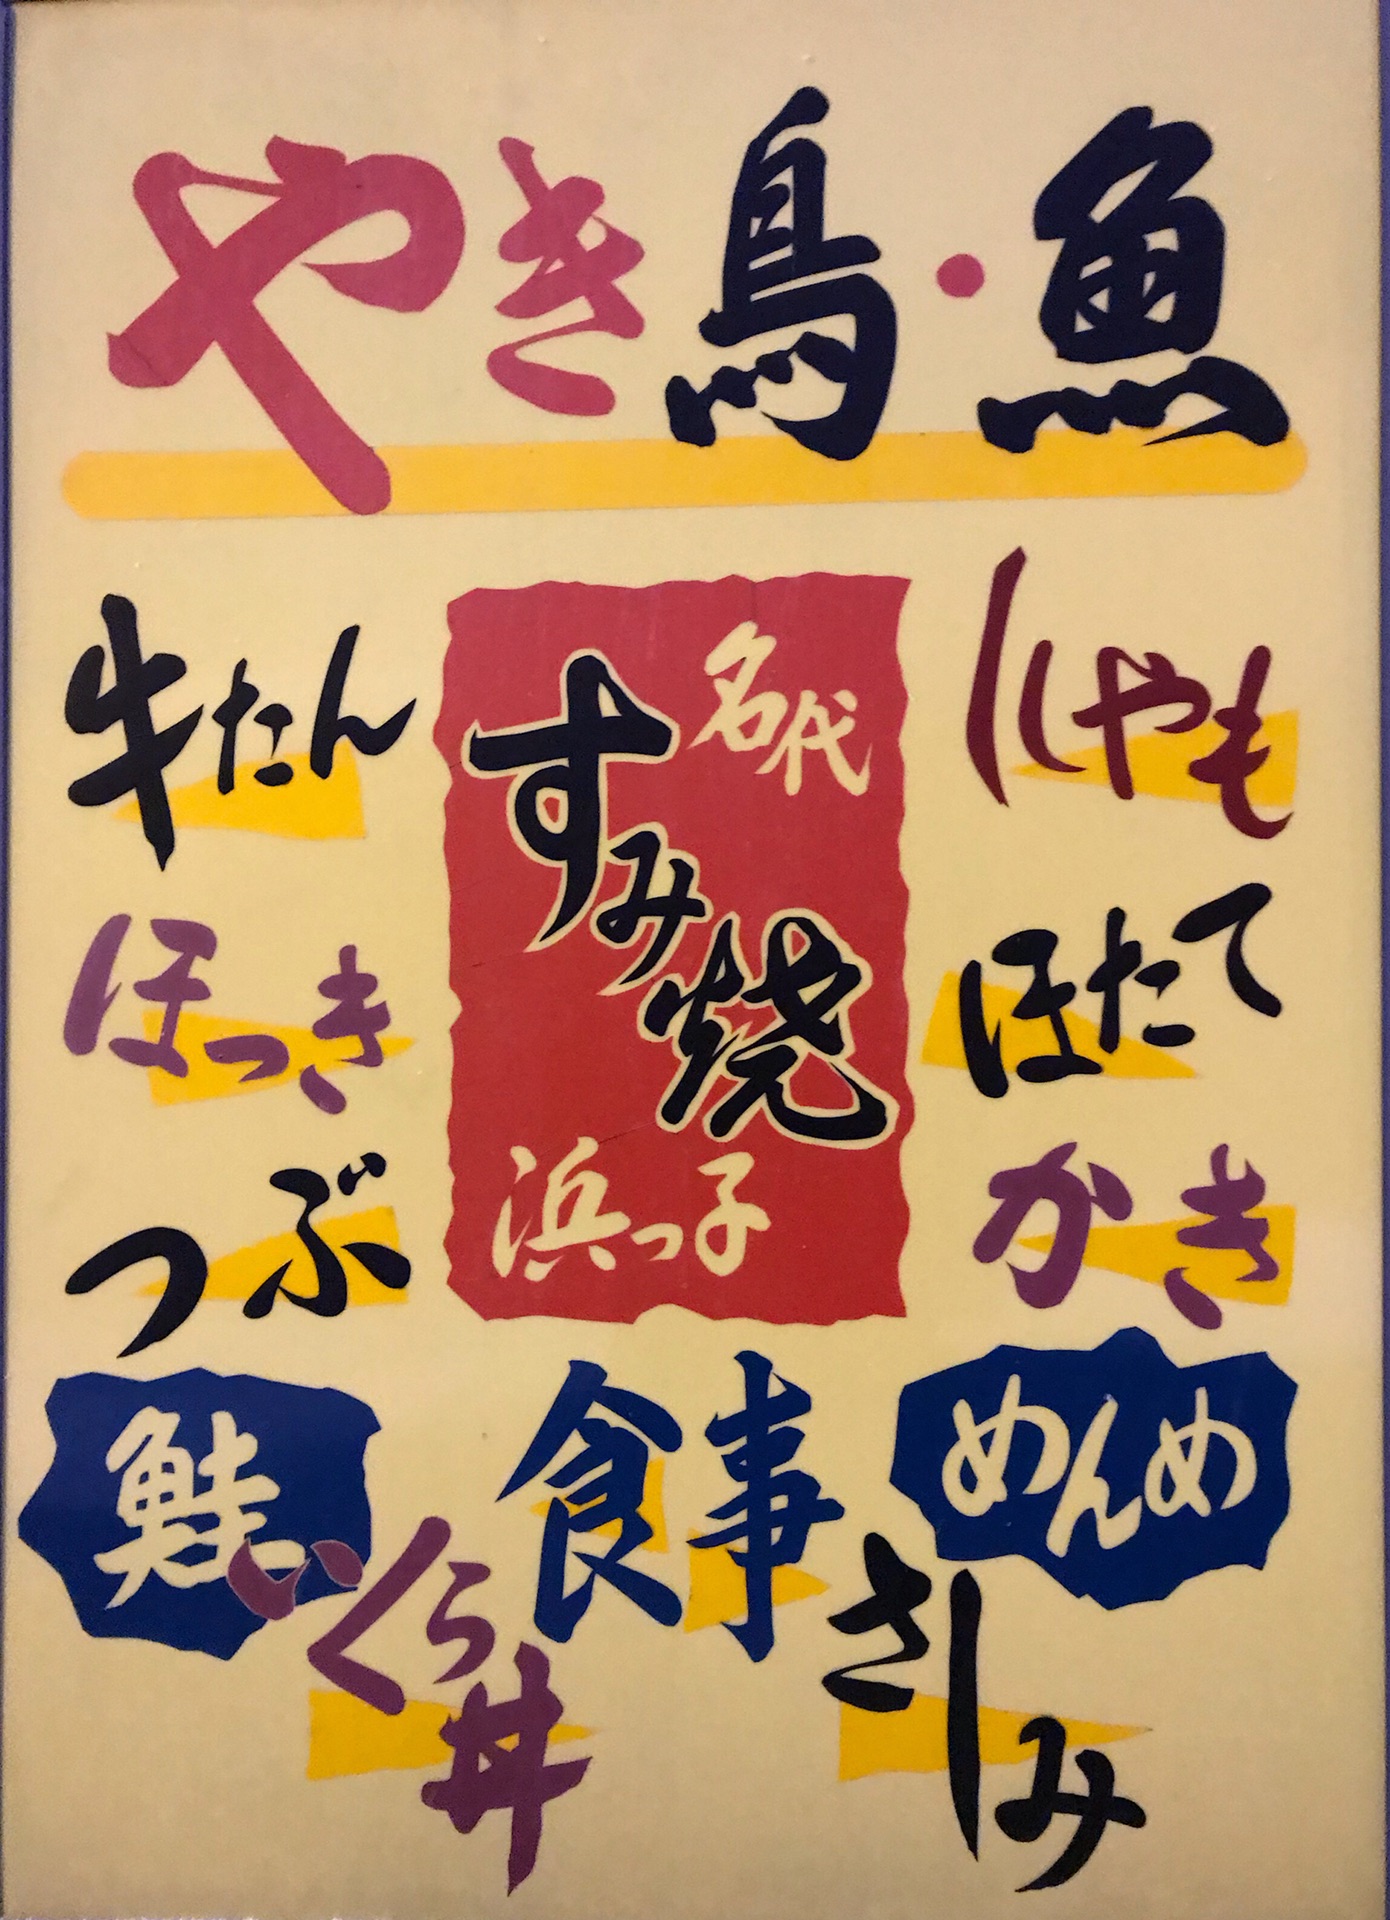 やき鳥・魚
牛たん
ほっき
つぶ
名代
すみ焼
浜っ子
ししゃも
ほたて
かき
鮭
いくら丼
食事
めんめ
さしみ